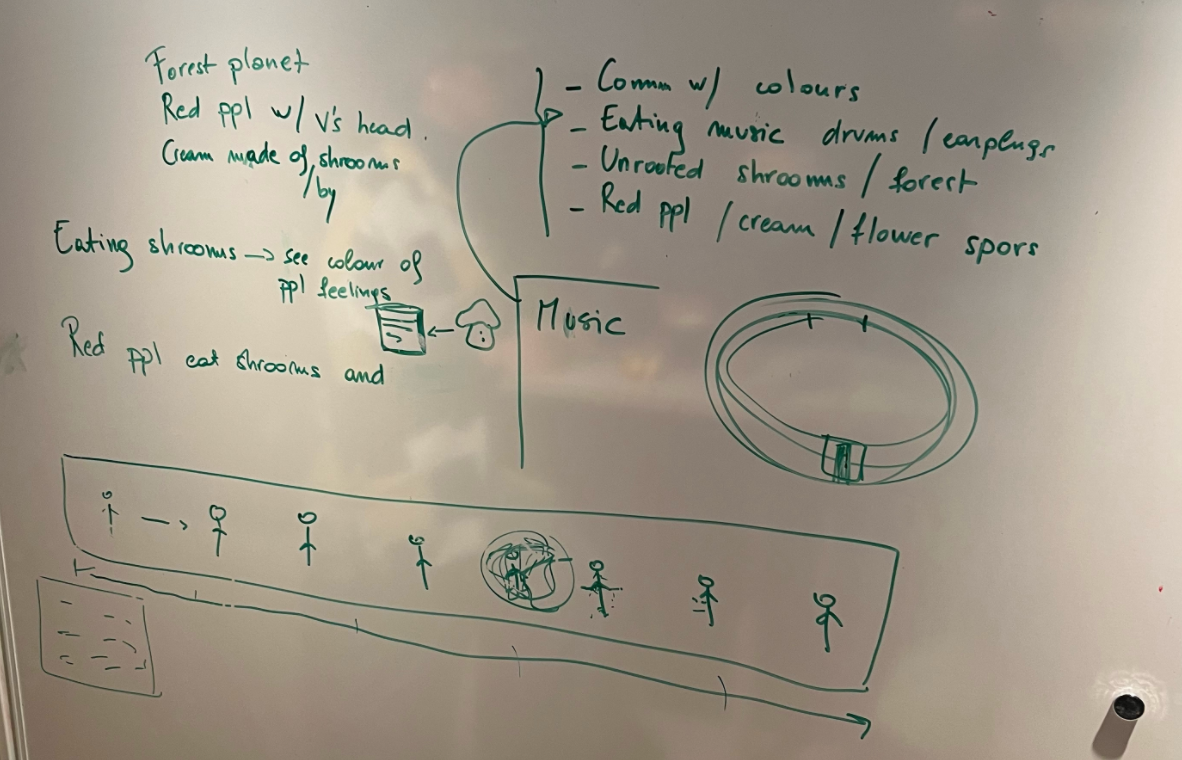 Forest planet
Red ppl w/ V's head.
Cream made of shrooms
/by
Eating shrooms → see colour of
ppl feelings
Red ppl eat shrooms and
- Comm w/ colours
- Eating music drums / earplugs
- Unrooted shrooms / forest
- Red ppl / cream / flower spors
Music